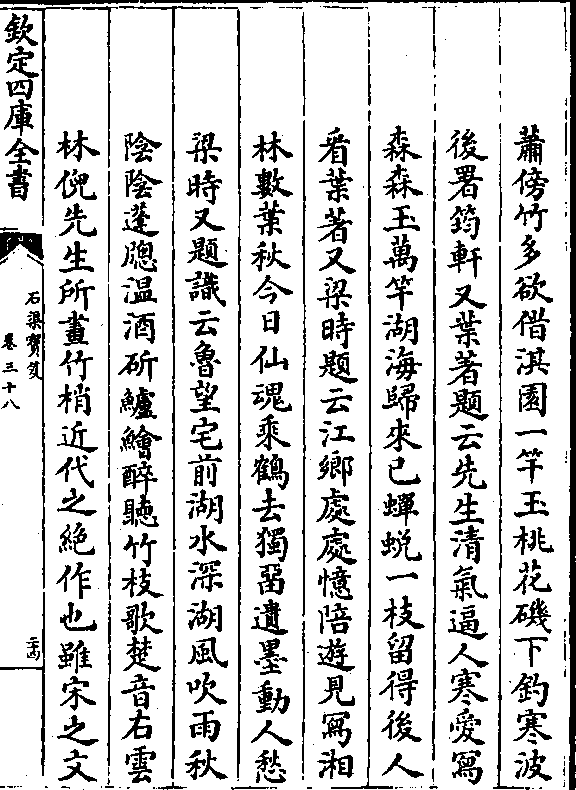 蕭傍竹多欲借淇園一竿玉桃花磯下釣寒波
後署筠軒又葉著題云先生清氣逼人寒愛寫
森森玉萬竿湖海歸來已蟬蛻一枝留得後人
看葉著又梁時題云江鄉處處憶陪遊見寫湘
林數葉秋今日仙魂乘鶴去獨留遺墨動人愁
梁時又題識云魯望宅前湖水深湖風吹雨秋
陰陰蓬牎温酒斫鱸鱠醉聽竹枝歌楚音右雲
林倪先生所畫竹梢近代之絶作也雖宋之文
欽定四庫全書
石渠寳笈
卷三十八